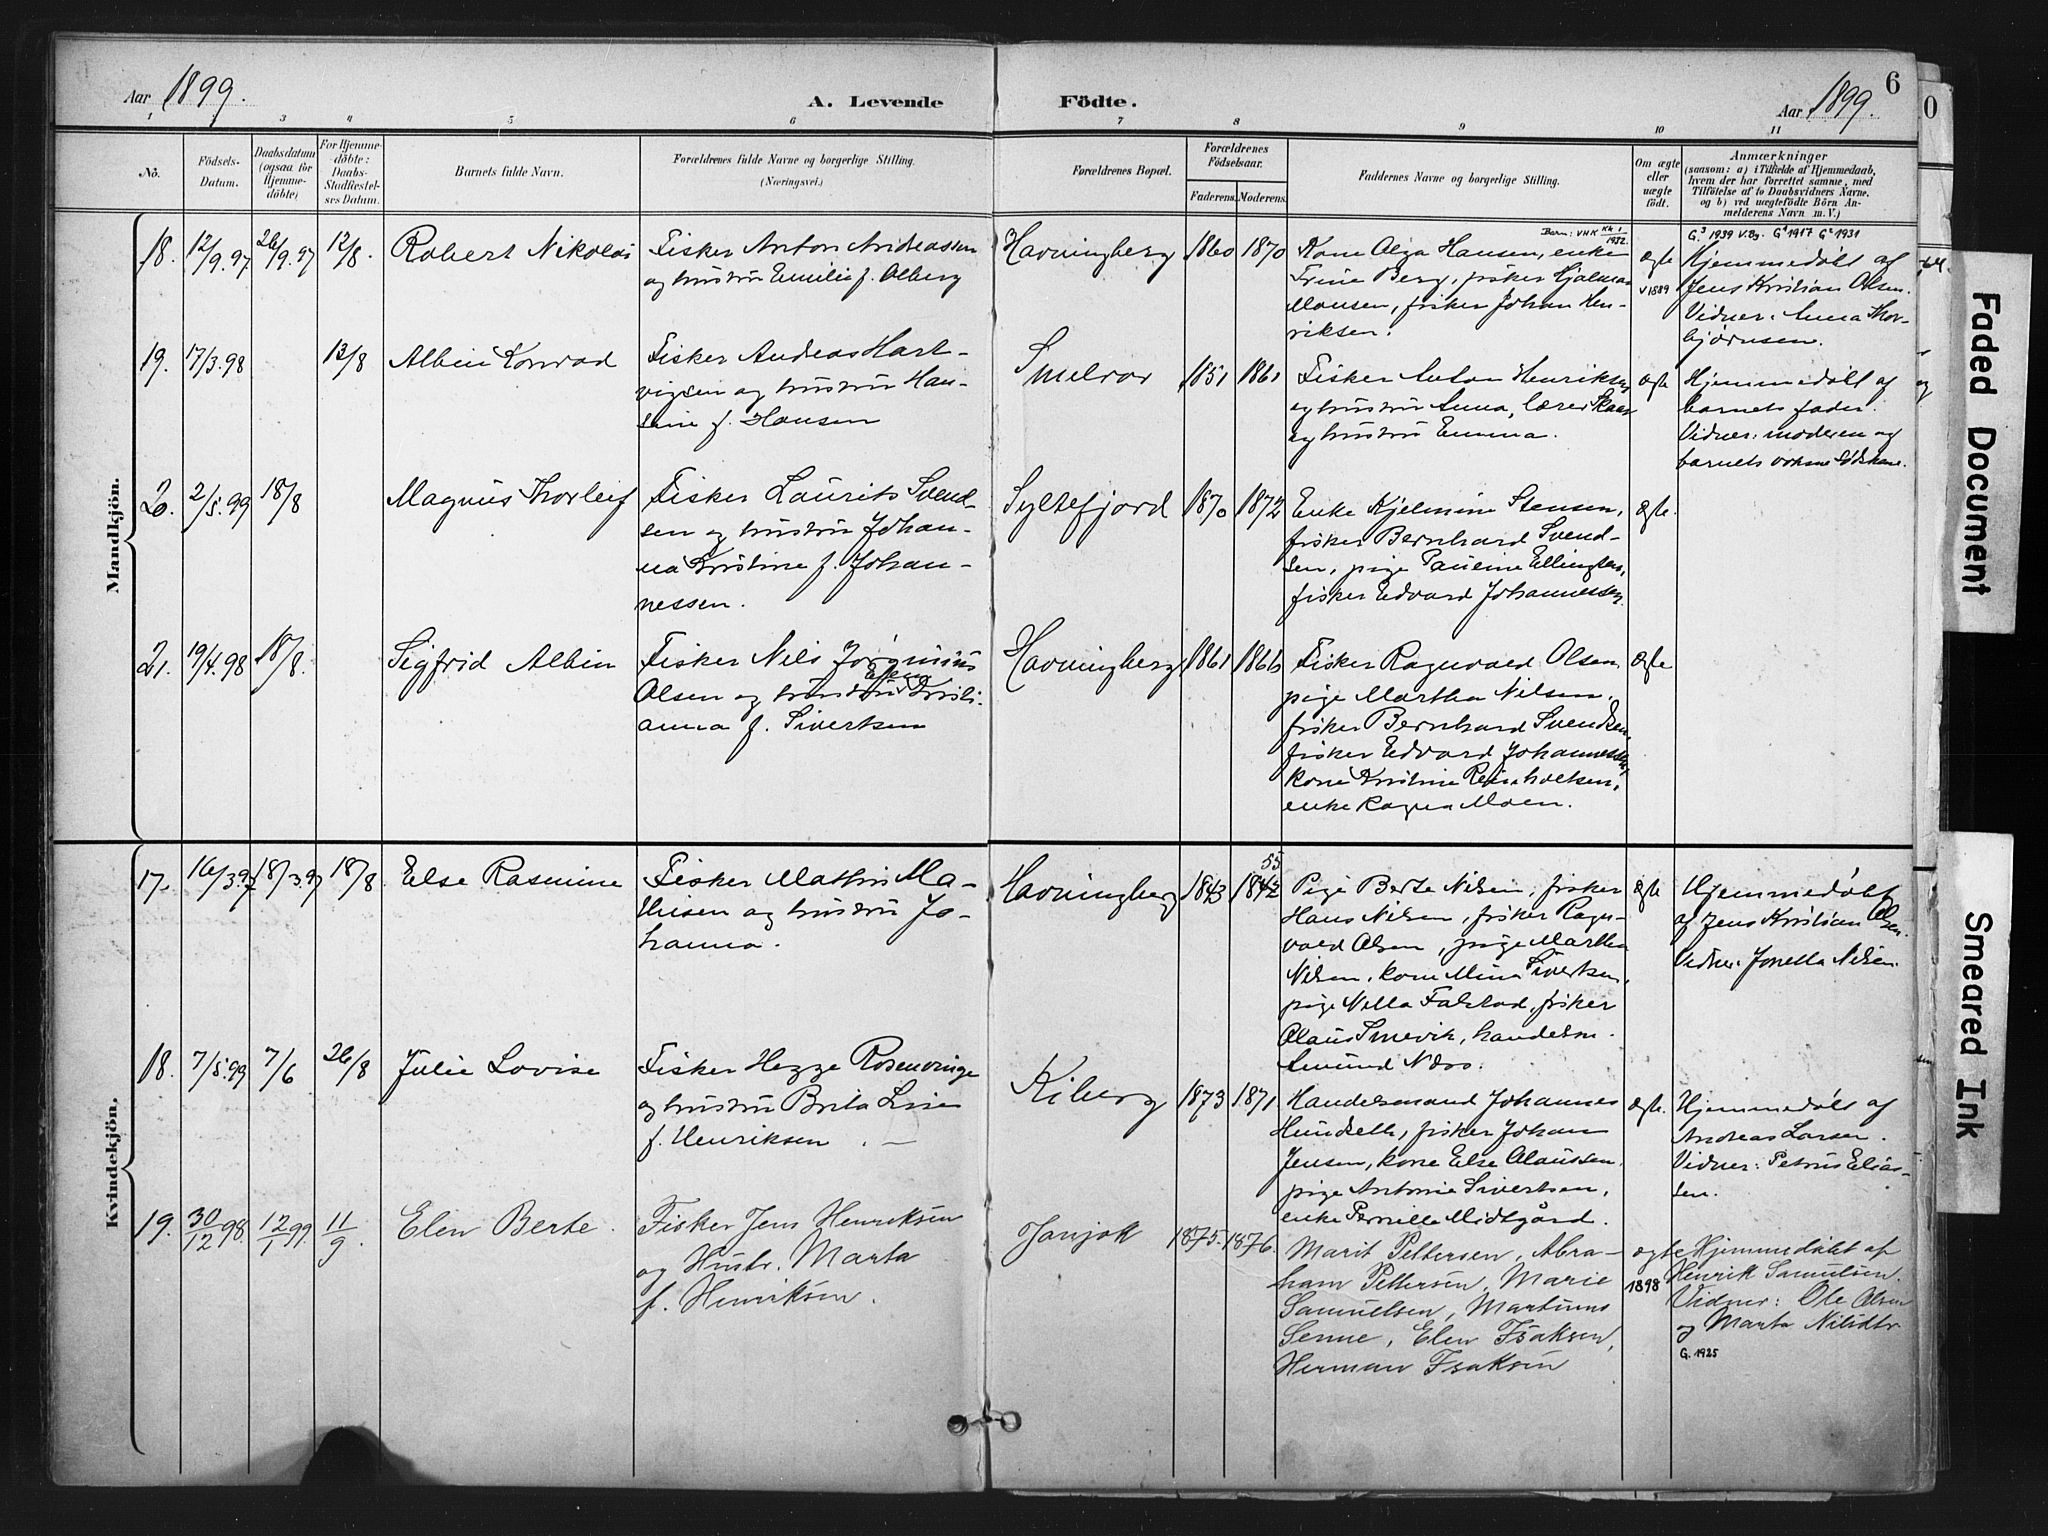 Aar 1899.
A. Levende
Födte.
Aar 1899.
6
1 2 3 4 5 6 7 8 9 10 11
No.
Födsels-Datum.
Daabsdatum (ogsaa for Hjemme-döbte)
For Hjemme-döbte: Daabs-Stadfæstel-ses Datum.
Barnets fulde Navn.
Forældrenes fulde Navne og borgerlige Stilling.
(Næringsvei.)
Forældrenes Bopæl.
Forældrenes Födselsaar.
Faderens. Moderens.
Faddernes Navne og borgerlige Stilling.
Om ægte eller uægte födt.
Anmærkninger
(saasom: a) i Tilfælde af Hjemmedaab,
hvem der har forrettet samme, med
Tilföielse af to Daabsvidners Navne.
og b) ved uægtefödte Börn An-
melderens Navn m. V.)
Mandkjön.
18. 12/9.97 26/9.97 12/8. Robert Nikolai
Fisker Anton Andreassen
og hustru Emilie f. Olberg
Havningberg 1860 1870
Barn: VHK Kh 1 1932
Kone Olga Hansen, enke
Trine Berg, fisker Hjalmar
Monsen, fisker Johan Hen-
riksen.
Ægte
V 1889
G.3 1939 V.By. G1 1917 G2 1931
Hjemmedøbt af
Jens Kristian Olsen.
Vidner: Anna Thor-
bjørnsen.
19. 17/3.98 13/8 Albin Konrad
Fisker Andreas Hart-
vigsen og hustru Han-
sine f. Hansen
Smelror 1851 1861
Fisker Anton Henriksen
og hustru Anna, lærer Skaar
og hustru Emma.
Ægte
Hjemmedøbt af
barnets fader.
Vidner: moderen og
barnets voksne sødskene.
20. 2/5.99 18/8 Magnus Thorleif
Fisker Laurits Svend-
sen og hustru Johan-
na Kristine f. Johan-
nessen.
Syltefjord 1870 1872
Enke Hjelmine Stensen,
fisker Bernhard Svend-
sen, pige Pauline Ellingsen,
fisker Edvard Johannessen
Ægte.
21. 19/4.98 18/8. Sigfrid Albin
Fisker Nils Jørginius
Olsen og hustru Kristi-
anna f. Sivertsen
Havningberg 1861 1866
Fisker Ragnvald Olsen
pige Martha Nilsen,
fisker Bernhard Svendsen,
fisker Edvard Johannessen,
kone Kristine Reinholtsen,
enke Ragna Moen.
Ægte
Kvindekjön.
17. 16/3.97 18/3.97 18/8 Else Rasmine
Fisker Mathis Ma-
thisen og hustru Jo-
hanna.
Havningberg 1843 1842
55
Pige Berte Nilsen, fisker
Hans Nilsen, fisker Ragn-
vald Olsen, pige Martha
Nilsen, kone Mina Sivertsen,
pige Nella Falstad, fisker
Olaus Smevik, handelsm.
Amund Næss.
Ægte
Hjemmedøbt
af Jens Kristian Olsen.
Vidner: Jonetta Nilsen.
18. 7/5.99 7/6 26/8 Julie Lovise
Fisker Hegge Rosenvinge
og hustru Brita Lise
f. Henriksen.
Kiberg 1873 1871
Handelsmand Johannes
Hundseth, fisker Johan
Jensen, kone Else Olaussen,
pige Antonie Sivertsen,
enke Pernille Midtgård.
Ægte.
Hjemmedøbt af
Andreas Larsen.
Vidner: Petrus Elias-
sen.
19. 30/12 98. 12/1 99. 11/9 Elen Berte.
Fisker Jens Henriksen
og Hustr. Marta
f. Henriksen.
Janjok 1875. 1876.
Marit Pettersen, Abra-
ham Pettersen, Marie
Samuelsen, Martinus
Senne, Elen Isaksen,
Herman Isaksen
ægte
1898
Hjemmedøbt af
Henrik Samuelsen.
Vidner: Ole Olsen
og Marta Nilsdtr
G. 1925
Faded Document
Smeared Ink